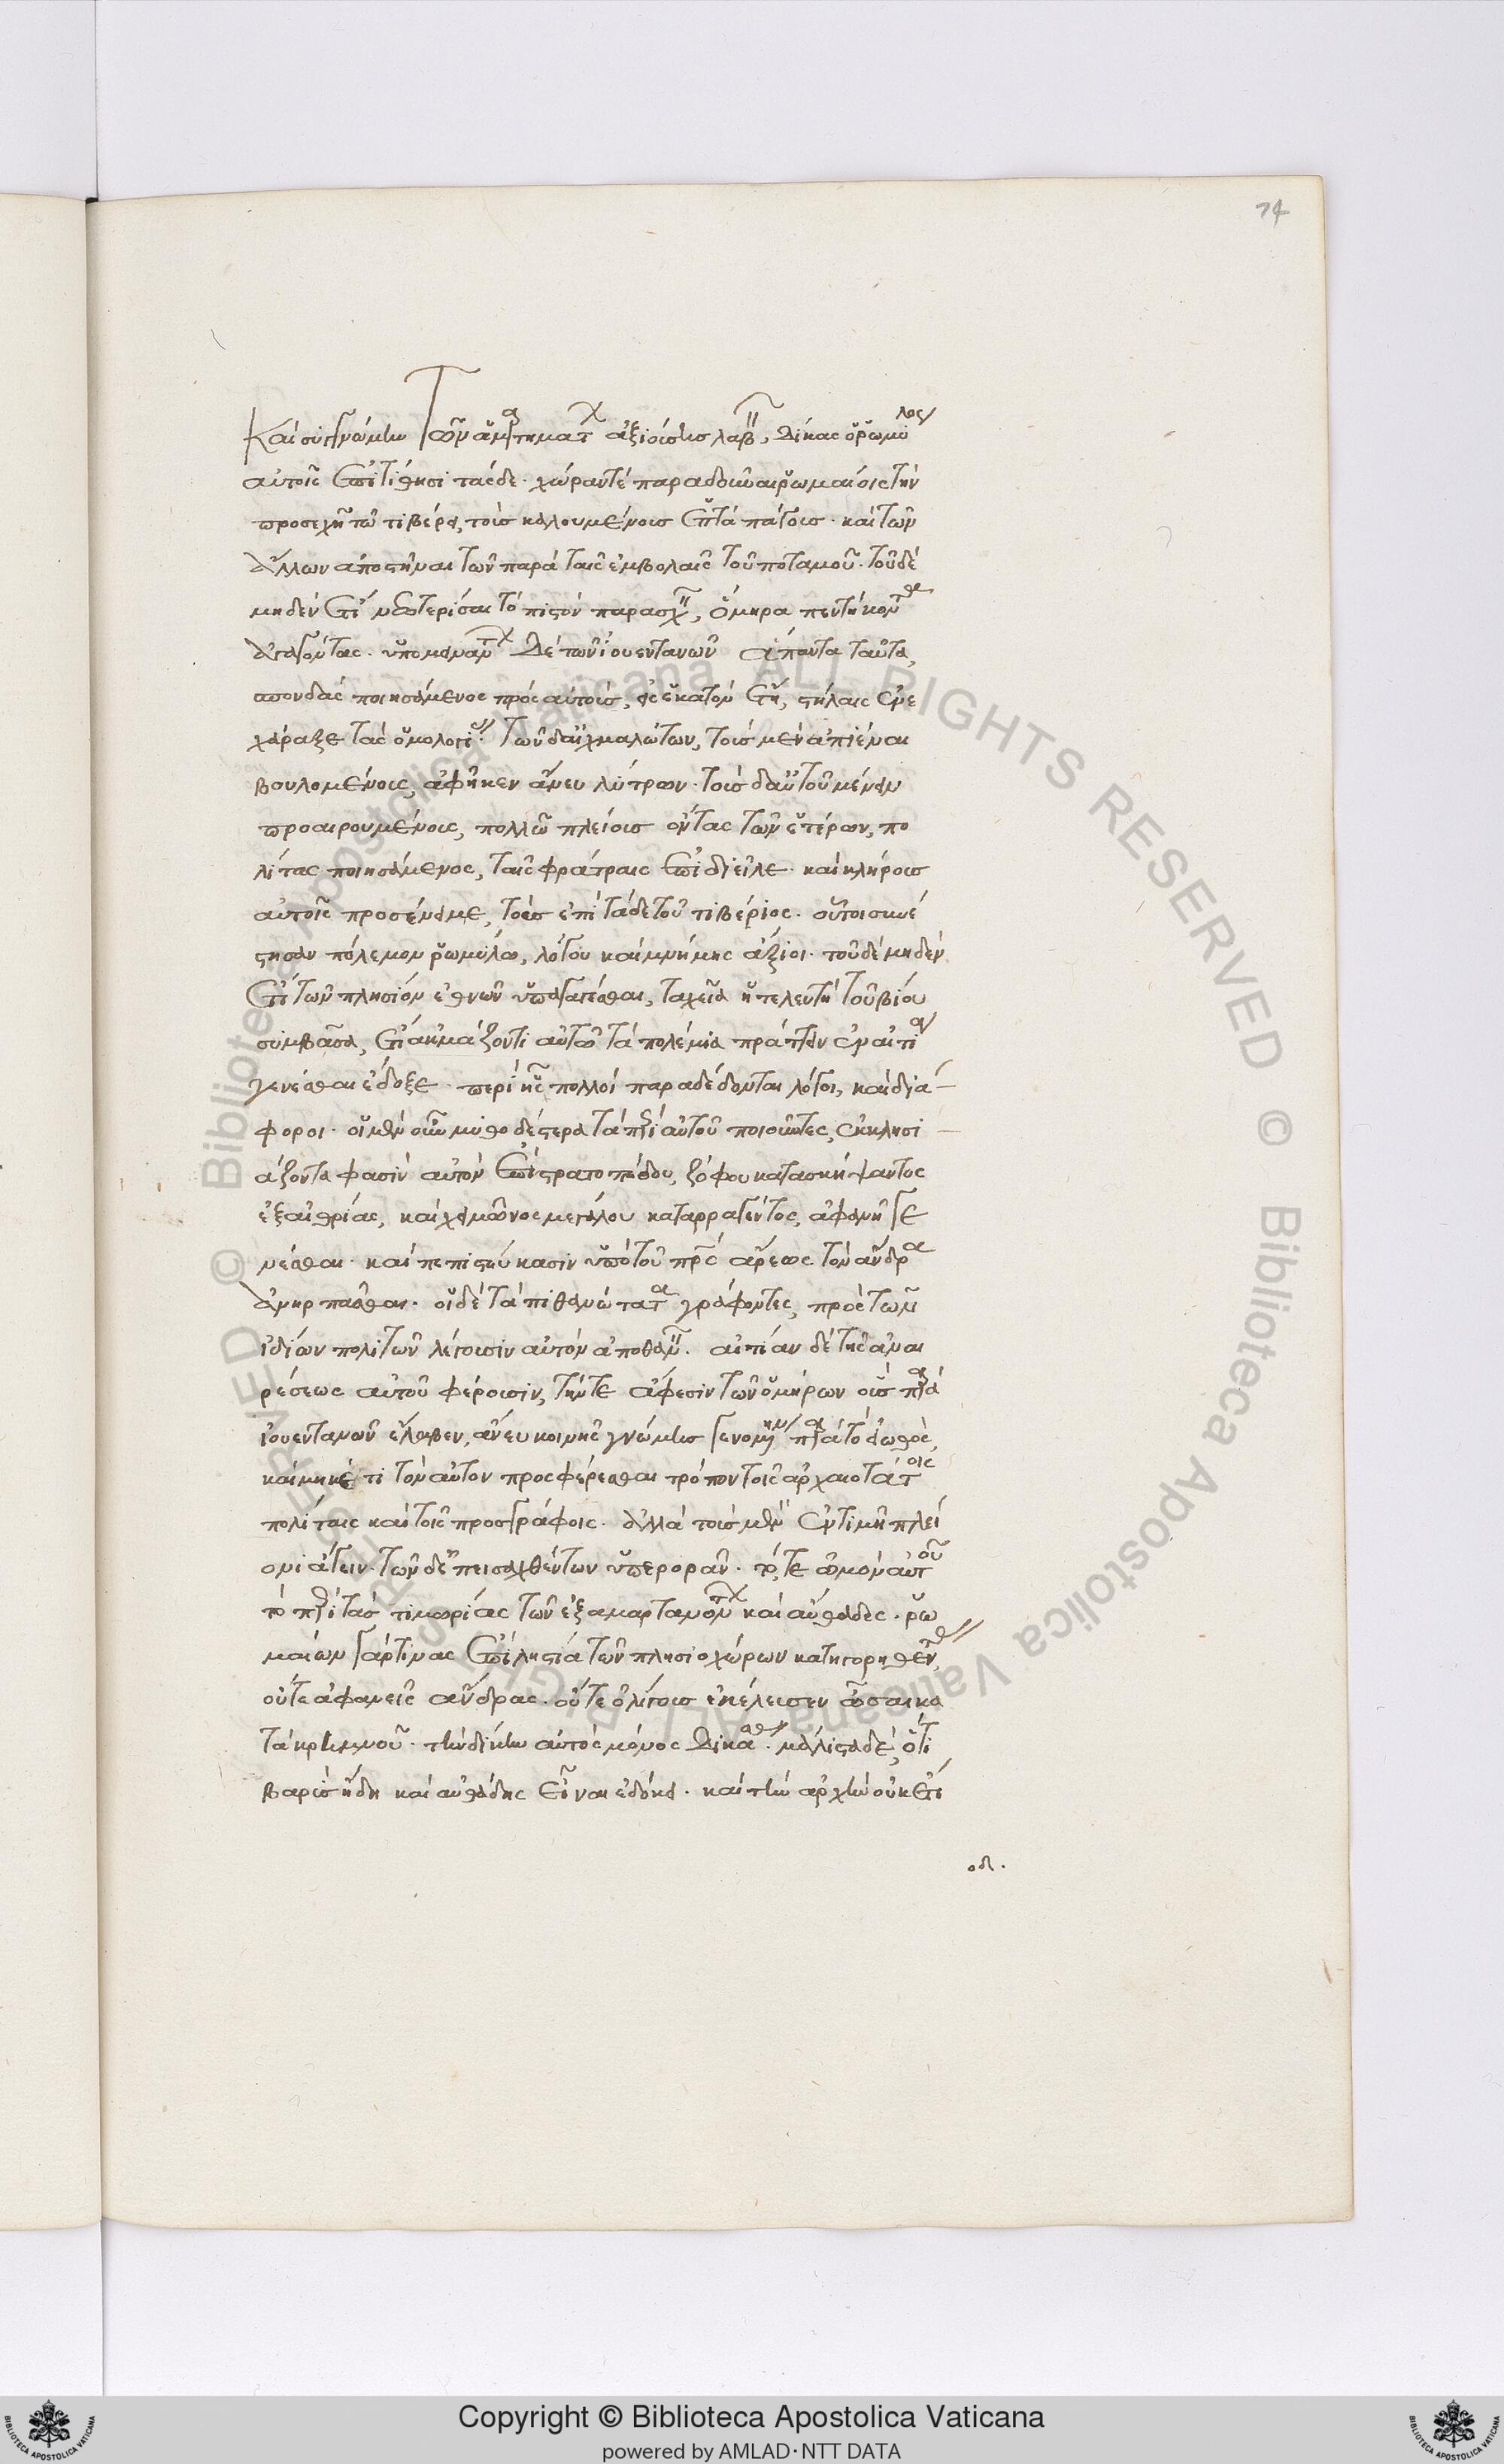 74
καὶ συγγνώμην τῶν ἁμαρτημάτων ἀξιούσης λαβεῖν, δίκας ὁ ῥωμύλος
αὐτοῖς ἐπιτίθησι τάσδε· χώραν τὲ παραδοῦναι ῥωμαίοις τὴν
προσεχῆ τῶ τιβέρει, τοὺς καλουμένους ἑπτὰ πάγους· καὶ τῶν
ἁλῶν ἀποστῆναι τῶν παρὰ ταῖς ἐμβολαῖς τοῦ ποταμοῦ· τοῦ δὲ
μηδὲν ἔτι νεωτερίσαι τὸ πιστὸν παρασχεῖν, ὅμηρα πεντήκοντα
ἀγαγόντας. ὑπομεινάντων δὲ τῶν ἰουεντανῶν ἅπαντα ταῦτα,
σπονδὰς ποιησάμενος πρὸς αὐτοὺς, εἰς ἑκατὸν ἔτη, στήλαις ἐνε
χάραξε τὰς ὁμολογίας. τῶν δ' αἰχμαλώτων, τοὺς μὲν ἀπιέναι
βουλομένους, ἀφῆκεν ἄνευ λύτρων· τοὺς δ' αὐτοῦ μένειν
προαιρουμένους, πολλῶ πλείους ὄντας τῶν ἑτέρων, πο
λίτας ποιησάμενος, ταῖς φράτραις ἐπιδιεῖλε· καὶ κλήρους
αὐτοῖς προσένειμε, τοὺς ἐπὶ τάδε τοῦ τιβέριος. οὗτοι συνέ
στησαν πόλεμον ῥωμύλω, λόγου καὶ μνήμης ἄξιοι. τοῦ δὲ μηδὲν
ἔτι τῶν πλησίον ἐθνῶν ὑπαγαγέσθαι, ταχεῖα ἡ τελευτὴ τοῦ βίου
συμβᾶσα, ἔτι ἀκμάζοντι αὐτῶ τὰ πολέμια πράττειν ἐν αἰτία
γενέσθαι ἔδοξε· περὶ ἧς πολλοὶ παραδέδονται λόγοι, καὶ διά-
φοροι. οἱ μὲν οὖν μυθωδέστερα τὰ περὶ αὐτοῦ ποιοῦντες, ἐκκλησι-
άζοντα φασὶν αὐτὸν ἐπὶ στρατοπέδου, ζόφου κατασκήψαντος
ἐξ αἰθρίας, καὶ χειμῶνος μεγάλου καταρραγέντος, ἀφανῆ γε
νέσθαι· καὶ πεπιστεύκασιν ὑπὸ τοῦ πατρὸς ἄρεως τὸν ἄνδρα
ἀνηρπᾶσθαι. οἱ δὲ τὰ πιθανώτατα γράφοντες, πρὸς τῶν
ἰδίων πολιτῶν λέγουσιν αὐτὸν ἀποθανεῖν. αἰτίαν δὲ τῆς ἀναι
ρέσεως αὐτοῦ φέρουσιν, τήν τε ἄφεσιν τῶν ὁμήρων οὓς παρὰ
ἰουεντανῶν ἔλαβεν, ἄνευ κοινῆς γνώμης γενομένην παρὰ τὸ εἰωθὸς,
καὶ μηκέτι τὸν αὐτὸν προσφέρεσθαι τρόπον τοῖς ἀρχαιοτάτοις
πολίταις καὶ τοῖς προσγράφοις. ἀλλὰ τοὺς μὲν ἐν τιμῆ πλεί
ονι ἄγειν· τῶν δ' ἐπεισαχθέντων ὑπερορᾶν· τό τε ὠμὸν αὐτοῦ
τὸ περὶ τὰς τιμωρίας τῶν ἐξαμαρτανόντων καὶ αὔθαδες. ῥω
μαίων γάρ τινας ἐπὶ ληστεία τῶν πλησιοχώρων κατηγορηθέντας,
οὔτε ἀφανεῖς ἄνδρας· οὔτε ὀλίγους ἐκέλευσεν ὦσαι κα
τὰ κρημνοῦ· τὴν δίκην αὐτὸς μόνος δικάσας. μάλιστα δὲ, ὅτι
βαρὺς ἤδη καὶ αὐθάδης εἶναι ἐδόκει· καὶ τὴν ἀρχὴν οὐκέτι
οδ.
Copyright © Biblioteca Apostolica Vaticana
powered by AMLAD·NTT DATA